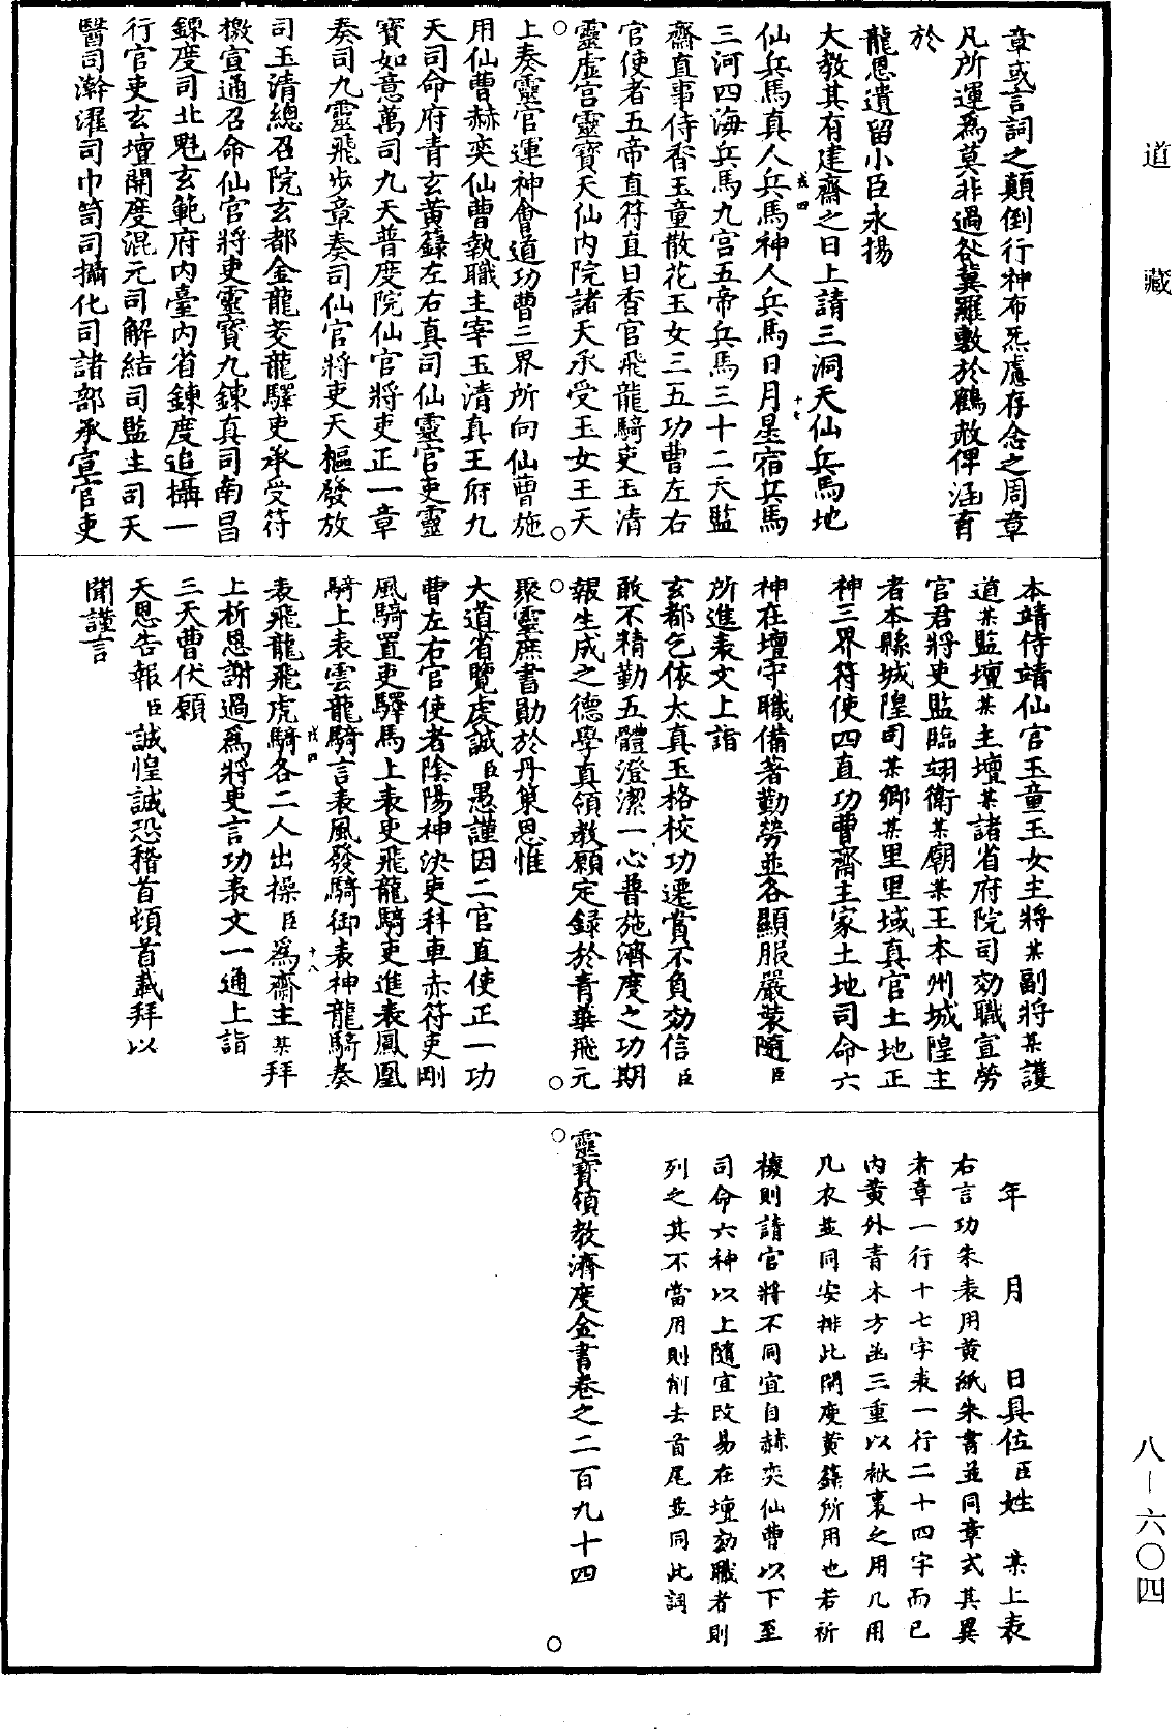 道藏
章或言詞之顛倒行神布炁慮存念之周章
凡所運為莫非過咎冀羅敷於鶴赦俾涵育
於
龍恩遺留小臣永揚
大教其有建齋之日上請三洞天仙兵馬地
仙兵馬真人兵馬神人兵馬日月星宿兵馬
三河四海兵馬九宮五帝兵馬三十二天監
齋直事侍香玉童散花玉女三五功曹左右
官使者五帝直符直日香官飛龍騎吏玉清
靈虛宮靈寶天仙內院諸天承受玉女王天
上奏靈官運神會道功曹三界所向仙曹施
用仙曹赫奕仙曹執職主宰玉清真王府九
天司命府青玄黃籙左右真司仙靈官吏靈
寶如意萬司九天普度院仙官將吏正一章
奏司九靈飛步章奏司仙官將吏天樞發放
司玉清總召院玄都金龍茭龍驛吏承受符
檄宣通召命仙官將吏靈寶九鍊真司南昌
鍊度司北魁玄範府內臺內省鍊度追攝一
行官吏玄壇開度混元司解結司監生司天
醫司澣濯司巾笥司攝化司諸部承宣官吏
本靖侍靖仙官玉童玉女主將某副將某護
道某監壇某主壇某諸省府院司効職宣勞
官君將吏監臨翊衛某廟某王本州城隍主
者本縣城隍司某鄉某里里域真官土地正
神三界符使四直功曹齋主家土地司命六
神在壇守職備著勤勞並各顯服嚴裝隨臣
所進表文上詣
玄都乞依太真玉格校功遷賞不負効信臣
敢不精勤五體澄潔一心普施濟度之功期
報生成之德學真領教願定録於青華飛元
聚靈庶書勛於丹菓恩惟
大道省覽虔誠臣愚謹因二官直使正一功
曹左右官使者陰陽神決吏科車赤符吏剛
風騎置吏驛馬上表吏飛龍騎吏進表鳳凰
騎上表雲龍騎言表風發騎御表神龍騎奏
表飛龍飛虎騎各二人出操臣為齋主某拜
上祈恩謝過為將吏言功表文一通上詣
三天曹伏願
天恩告報臣誠惶誠恐稽首頓首載拜以
聞謹言
年月日具位臣姓某上表
右言功朱表用黃紙朱書並同章式其異
者章一行十七字表一行二十四字而已
內黃外青木方函三重以袱裹之用几用
几衣並同安排此開度黃籙所用也若祈
禳則請官將不同宜自赫奕仙曹以下至
司命六神以上隨宜改易在壇効職者則
列之其不當用則削去首尾並同此詞
靈寶領教濟度金書卷之二百九十四
八－六〇四